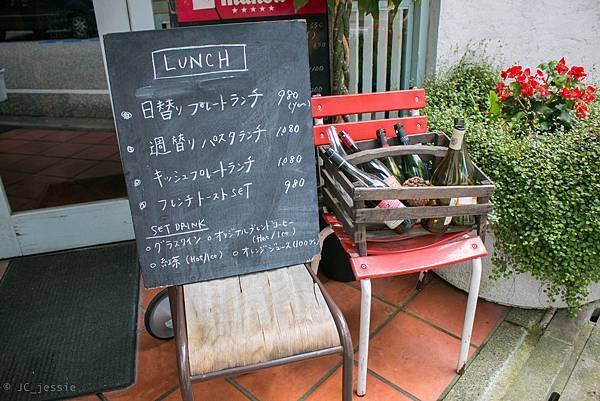 LUNCH
日替りプレートランチ 980
(yen)
週替りパスタランチ 1080
キッシュプレートランチ 1080
フレンチトースト SET 980
SET DRINK
○グラスワイン ○オリジナルブレンドコーヒー
(Hot/Ice)
○紅茶 (Hot/Ice) ○オレンジジュース(100%)
© JC_jessie